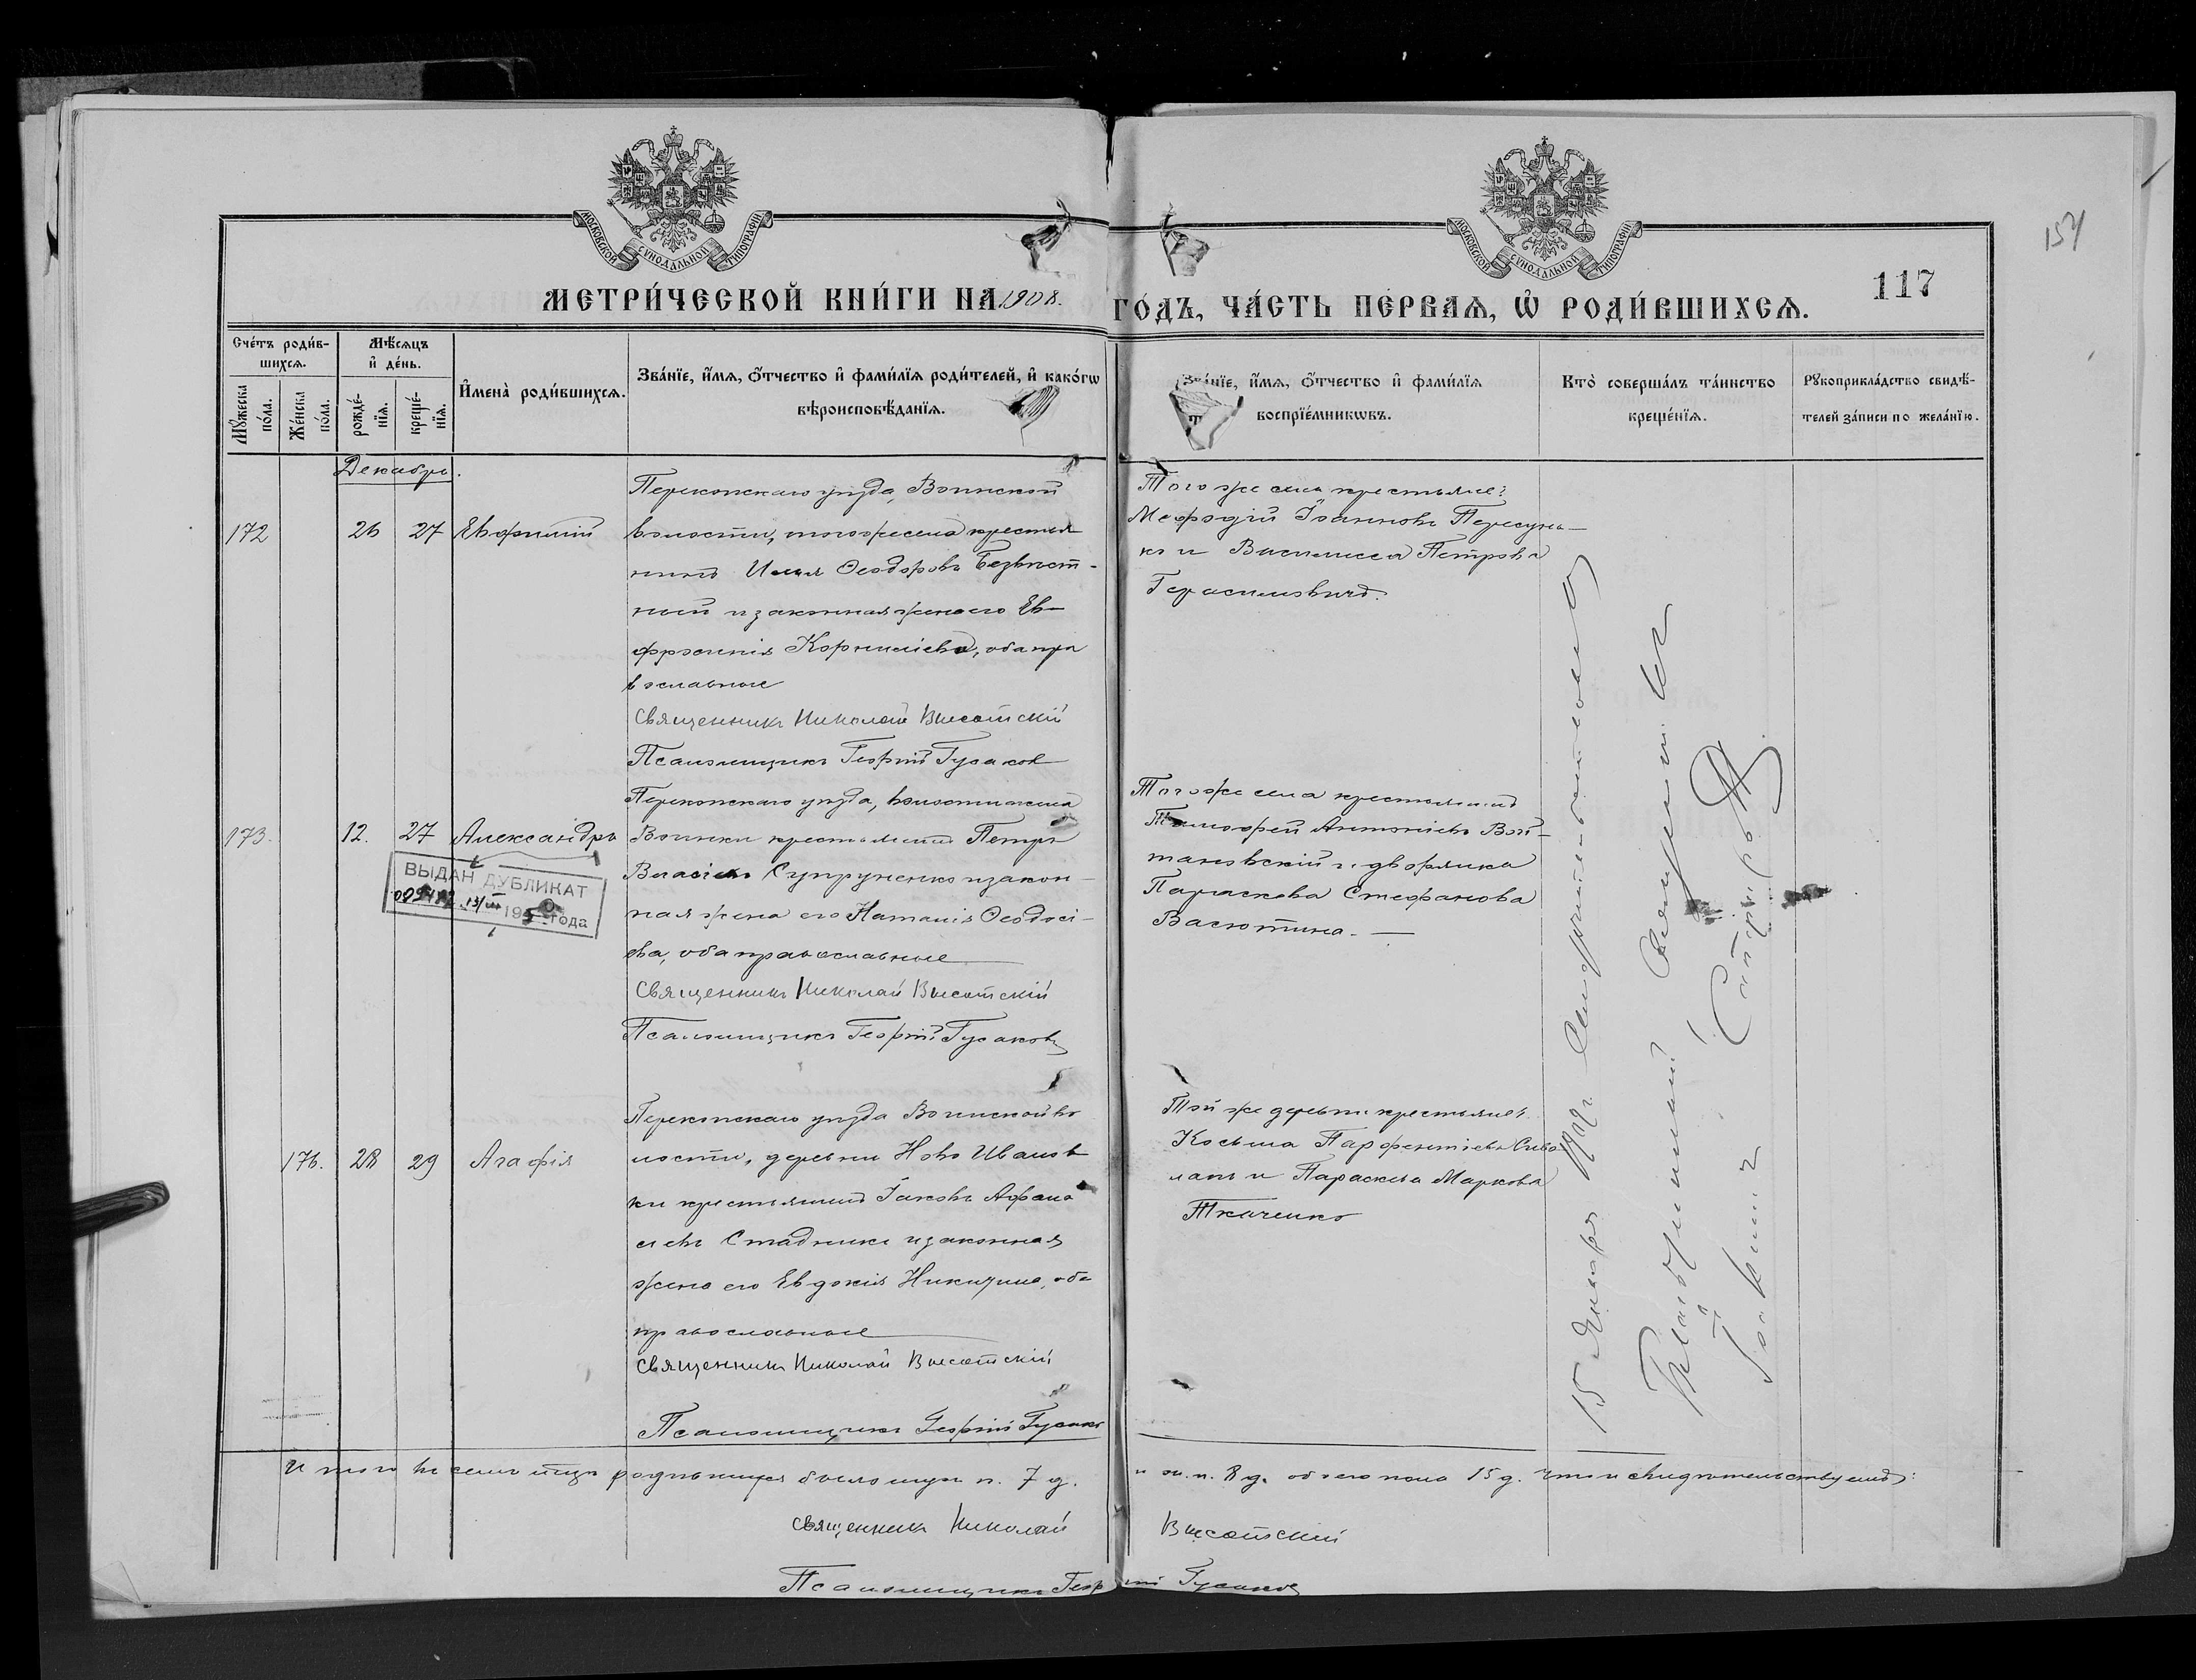 157
117
МОСКОВСКОЙ СѴНОДАЛЬНОЙ ТИПОГРАФІИ
МОСКОВСКОЙ СѴНОДАЛЬНОЙ ТИПОГРАФІИ
МЕТРИ́ЧЕСКОЙ КНИ́ГИ НА 1908. ГО́ДЪ, ЧА́СТЬ ПЕ́РВАѦ, Ѡ҆ РОДИ́ВШИХСѦ.
Сче́тъ роди́в-
шихсѧ.
Мꙋ́жеска по́ла.
Же́нска по́ла.
Мѣ́сѧцъ
и҆ де́нь.
рожде́-
нїѧ.
креще́-
нїѧ.
И҆мена̀ роди́вшихсѧ.
Зва́нїе, и҆́мѧ, ѻ҆́тчество и҆ фами́лїѧ роди́телей, и҆ како́гѡ
вѣроисповѣ́данїѧ.
Зва́нїе, и҆́мѧ, ѻ҆́тчество и҆ фами́лїѧ
воспрїе́мникѡвъ.
Кто̀ соверша́лъ та́инство
креще́нїѧ.
Рꙋкоприкла́дство свидѣ́-
телей за́писи по жела́нїю.
Декабрь.
172
26
27
Евфимій
Перекопскаго уѣзда, Воинской
волости, того же села крестья
нинъ Илья Ѳеодоровъ Безвѣст-
ный и законная жена его Ев-
фросинія Корниліева, оба пра
вославные
Священникъ Николай Высотскій
Псаломщикъ Георгій Гусаков
Того же села крестьяне:
Мефодій Іоанновъ Пересунь-
ко и Василисса Петрова
Герасимовичъ.
173.
12.
27
Александръ
Перекопскаго уѣзда, волости и села
Воинки крестьянинъ Петръ
Власіевъ Супруненко и закон-
ная жена его Наталія Ѳеодосі-
ева, оба православные
Священникъ Николай Высотскій
Псаломщикъ Георгій Гусаковъ
Того же села крестьянинъ
Тимофей Антоніевъ Вой-
тановскій и дворянка
Параскева Стефанова
Васютина.
ВЫДАН ДУБЛИКАТ
195 года
176.
28
29
Агафія
Перекопскаго уѣзда Воинской во
лости, деревни Ново Иванов
ки крестьянинъ Іаковъ Афана
сіевъ Стадникъ и законная
жена его Евдокія Никитина, оба
православные
Священникъ Николай Высотскій
Псаломщикъ Георгій Гусаковъ
Той же деревни крестьяне:
Косьма Парфентіевъ
и Параскева Маркова
Ткаченко
15 Января
Итого въ семъ мѣсяцѣ родившихся было муж. п. 7 д. и ж. п. 8 д. обоего пола 15 д. что и свидѣтельствуемъ:
Священникъ Николай Высотскій
Псаломщикъ Георгій Гусаковъ